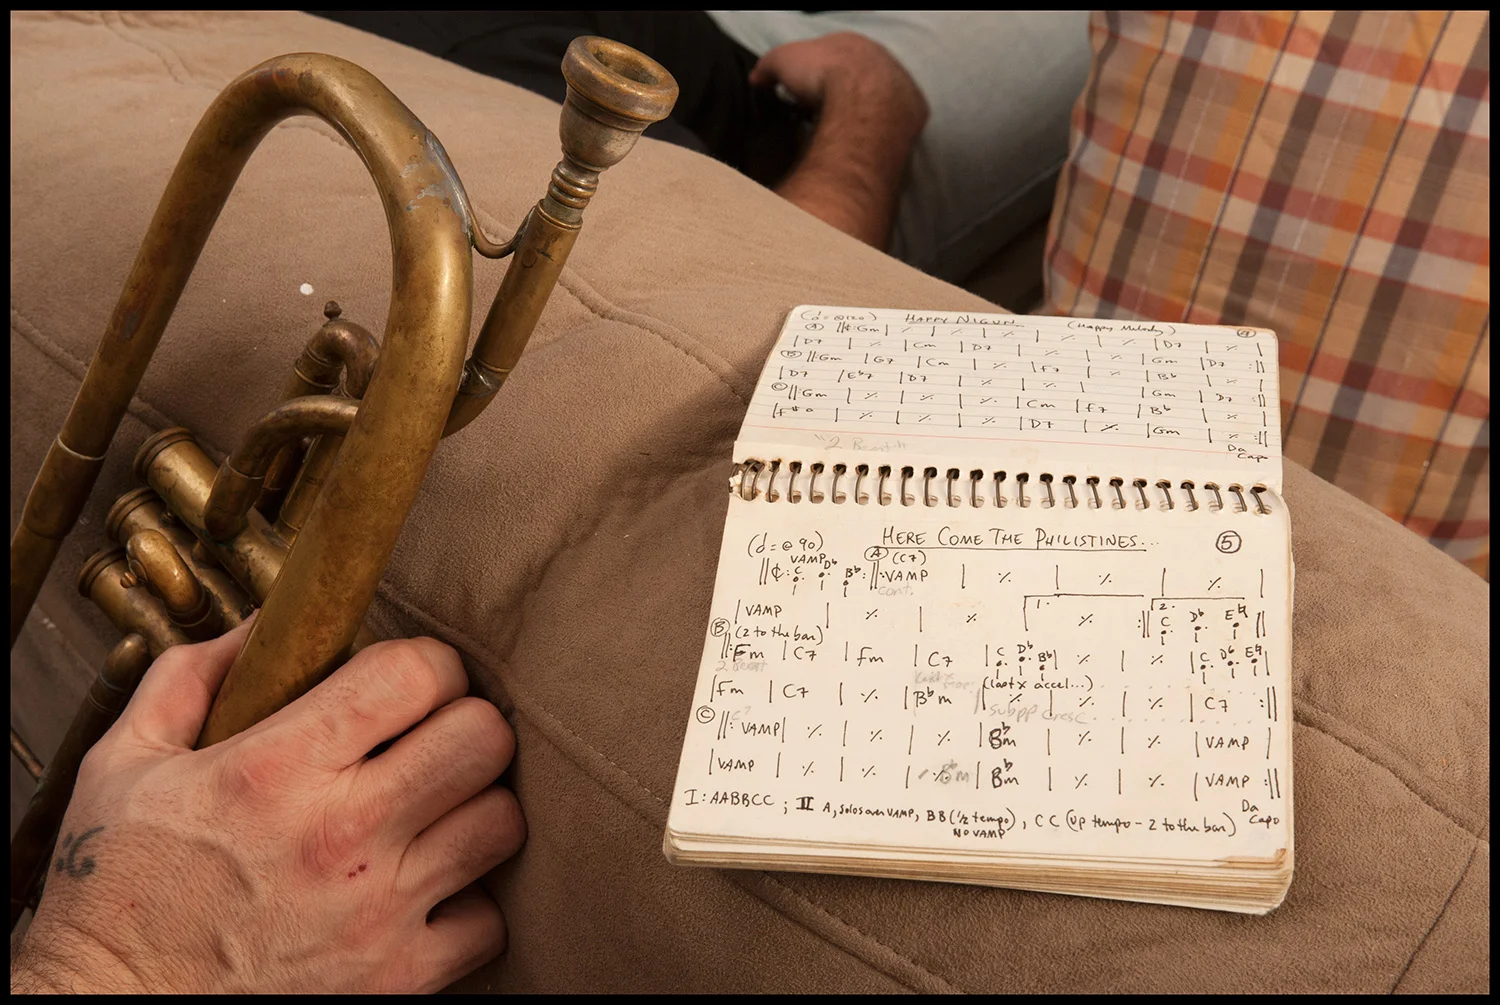 (d = @120) HAPPY NIGUN (Happy Melody) 4
A ||¢: Gm | ٪ | ٪ | ٪ | ٪ | ٪ | D7 | ٪ |
| D7 | ٪ | Cm | D7 | ٪ | ٪ | Gm | D7 :||
B ||: Gm | G7 | Cm | ٪ | F7 | ٪ | Bb | ٪ |
| D7 | Eb7 | D7 | ٪ | ٪ | Gm | D7 :||
C ||: Gm | ٪ | ٪ | ٪ | Cm | F7 | Bb | ٪ |
| F#o | ٪ | ٪ | ٪ | D7 | ٪ | Gm | ٪ :||
Da Capo
HERE COME THE PHILISTINES... 5
(d = @ 90)
VAMP A (C7)
||¢: C Db Bb :||: VAMP | ٪ | ٪ | ٪ |
cont.
| VAMP | ٪ | ٪ | 1. ٪ :|| 2. C Db E♮ ||
B (2 to the bar)
||: Fm | C7 | Fm | C7 | C Db Bb | ٪ | ٪ | C Db E♮ |
2 Beat
(last x accel...)
| Fm | C7 | ٪ | Bbm | ٪ | ٪ | ٪ | C7 :||
subpp cresc
C ||: VAMP | ٪ | ٪ | ٪ | Bbm | ٪ | ٪ | VAMP |
| VAMP | ٪ | ٪ | ٪ | Bbm | ٪ | ٪ | VAMP :||
Da Capo
I: AABBCC ; II A, solos over VAMP, BB (½ tempo), CC (up tempo - 2 to the bar)
NO VAMP